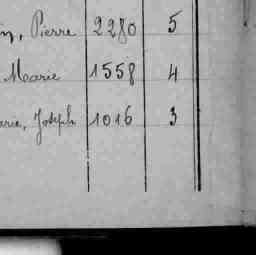 Pierre 2280 5
Marie 1558 4
Joseph 1016 3